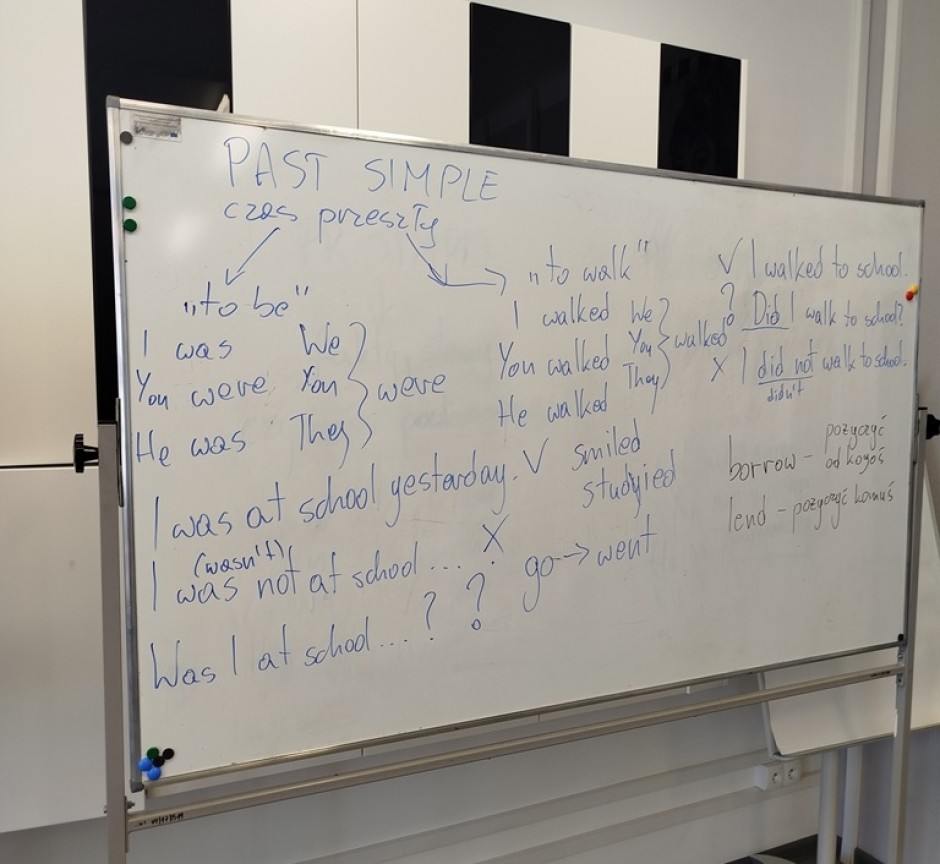 PAST SIMPLE
czas przeszły
„to be"
I was We
You were You } were
He was They
I was at school yesterday. V
(wasn't)
I was not at school ... X
Was I at school ... ? ?
„to walk"
I walked We
You walked You } walked
He walked They
smiled
studyied
go → went
V I walked to school.
? Did I walk to school?
X I did not walk to school.
didn't
borrow - pożyczyć
od kogoś
lend - pożyczyć komuś